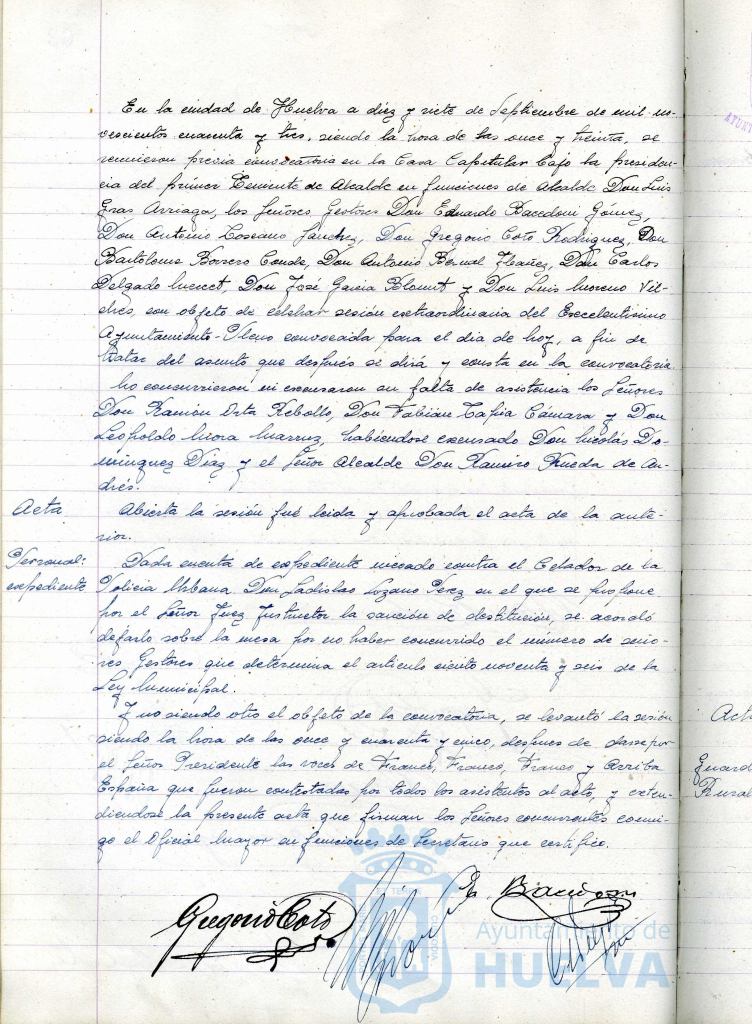 En la ciudad de Huelva a diez y siete de Septiembre de mil no-
vescientos cuarenta y tres, siendo la hora de las once y treinta, se
reunieron previa convocatoria en la Casa Capitular bajo la presiden-
cia del primer Teniente de Alcalde en funciones de Alcalde Don Luis
Gras Arriaga, los Señores Gestores Don Eduardo Bacedoni Gómez,
Don Antonio Loscano Sánchez, Don Gregorio Coto Rodriguez, Don
Bartolome Borrero Conde, Don Antonio Bernal Ibañez, Don Carlos
Delgado Don José Garcia y Don Luis Moreno Vil-
ches, con objeto de celebrar sesión extraordinaria del Excelentisimo
Ayuntamiento-Pleno convocada para el dia de hoy, a fin de
tratar del asunto que después se dirá y consta en la convocatoria.
No concurrieron ni excusaron su falta de asistencia los Señores
Don Ramón Orta Rebollo, Don Fabián Tapia Cámara y Don
Leopoldo Mora habiéndose excusado Don Nicolás Do-
minguez Diaz y el Señor Alcalde Don Ramiro Rueda de An-
drés.
Acta
Abierta la sesión fué leida y aprobada el acta de la ante-
rior.
Personal:
expediente
Dada cuenta de expediente incoado contra el Celador de la
Policia Urbana Don Ladislao Lozano Perez en el que se propone
por el Señor Juez Instructor la sanción de destitución, se acordó
dejarlo sobre la mesa por no haber concurrido el número de seño-
res Gestores que determina el articulo ciento noventa y seis de la
Ley Municipal.
Y no siendo otro el objeto de la convocatoria, se levantó la sesión
siendo la hora de las once y cuarenta y cinco, despues de darse por
el Señor Presidente las voces de Franco, Franco, Franco y Arriba
España que fueron contestadas por todos los asistentes al acto, y exten-
diendose la presente acta que firman los Señores concurrentes conmi-
go el Oficial Mayor en funciones de Secretario que certifico.
Gregorio Coto
E. Bacedoni
Ayuntamiento de
HUELVA
Acta
Guard
Rural